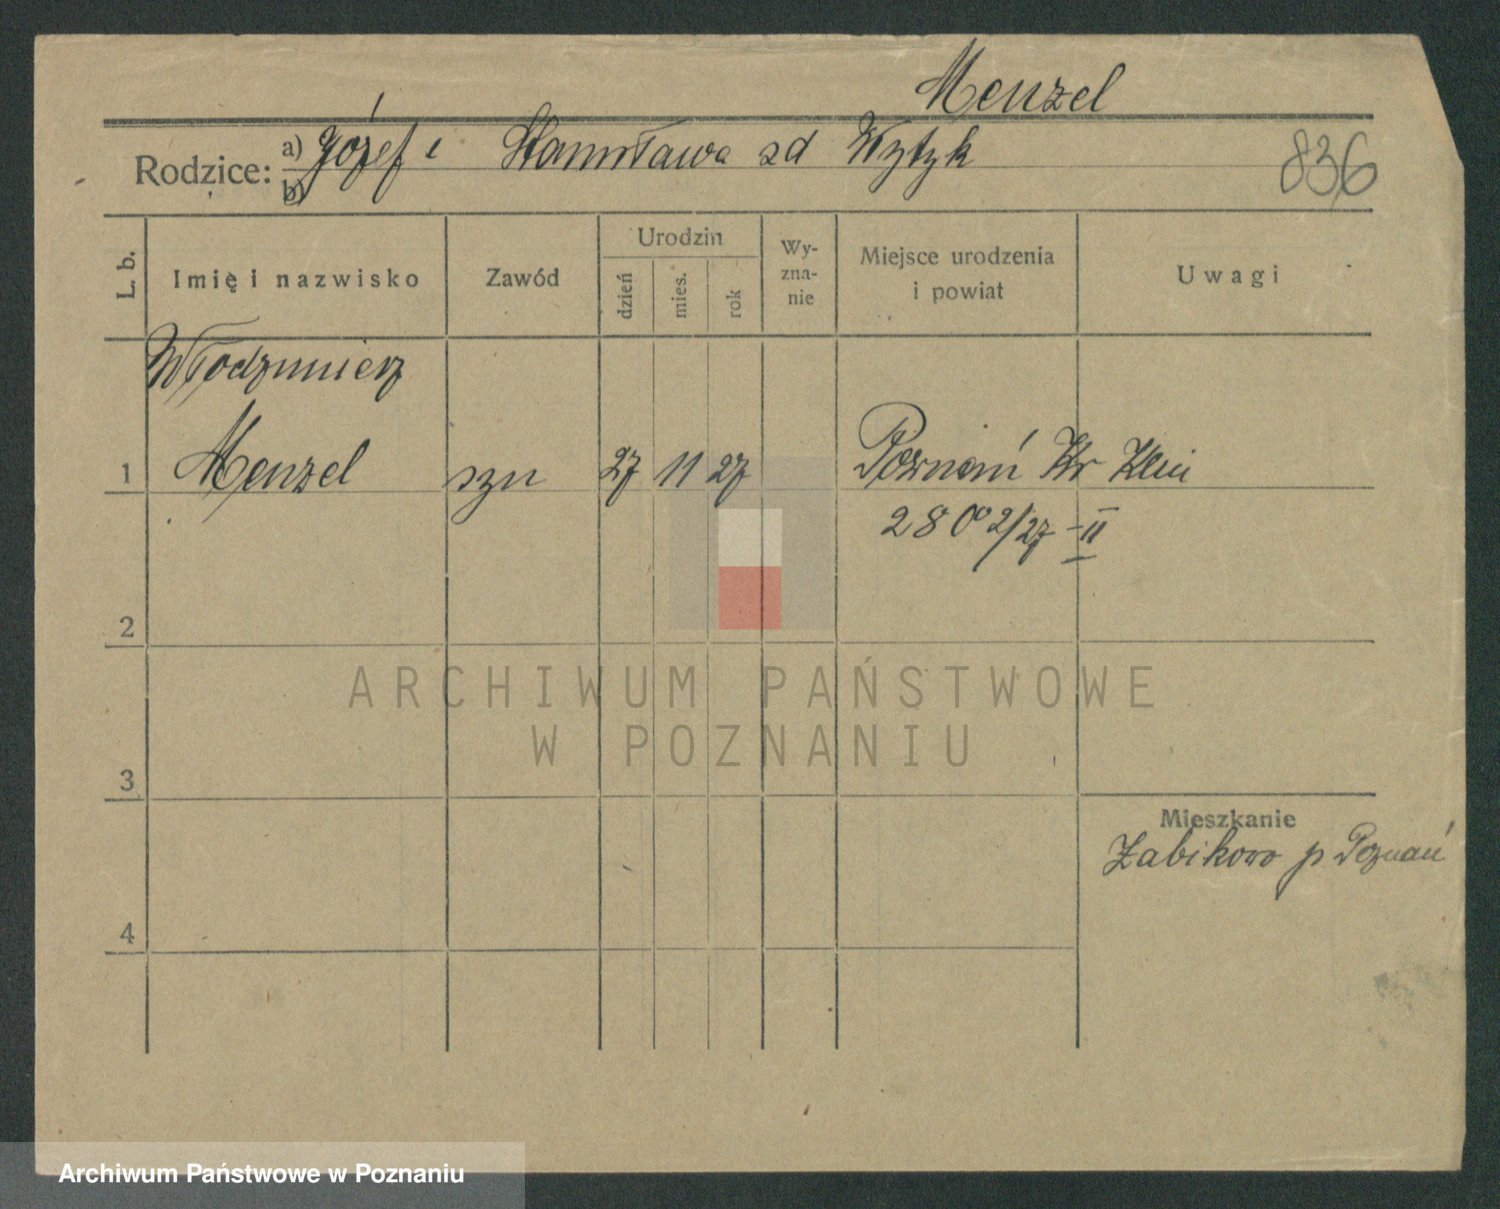 Menzel
Rodzice: a) Józef i Stanisława zd Wytyk
b)
836
L. b.
Imię i nazwisko
Zawód
Urodzin
dzień
mies.
rok
Wy-
zna-
nie
Miejsce urodzenia
i powiat
Uwagi
Włodzimierz
1 Menzel syn 27 11 27 Poznań
2802/27-II
2
3
4
Mieszkanie
Żabikowo p. Poznań
ARCHIWUM PAŃSTWOWE
W POZNANIU
Archiwum Państwowe w Poznaniu